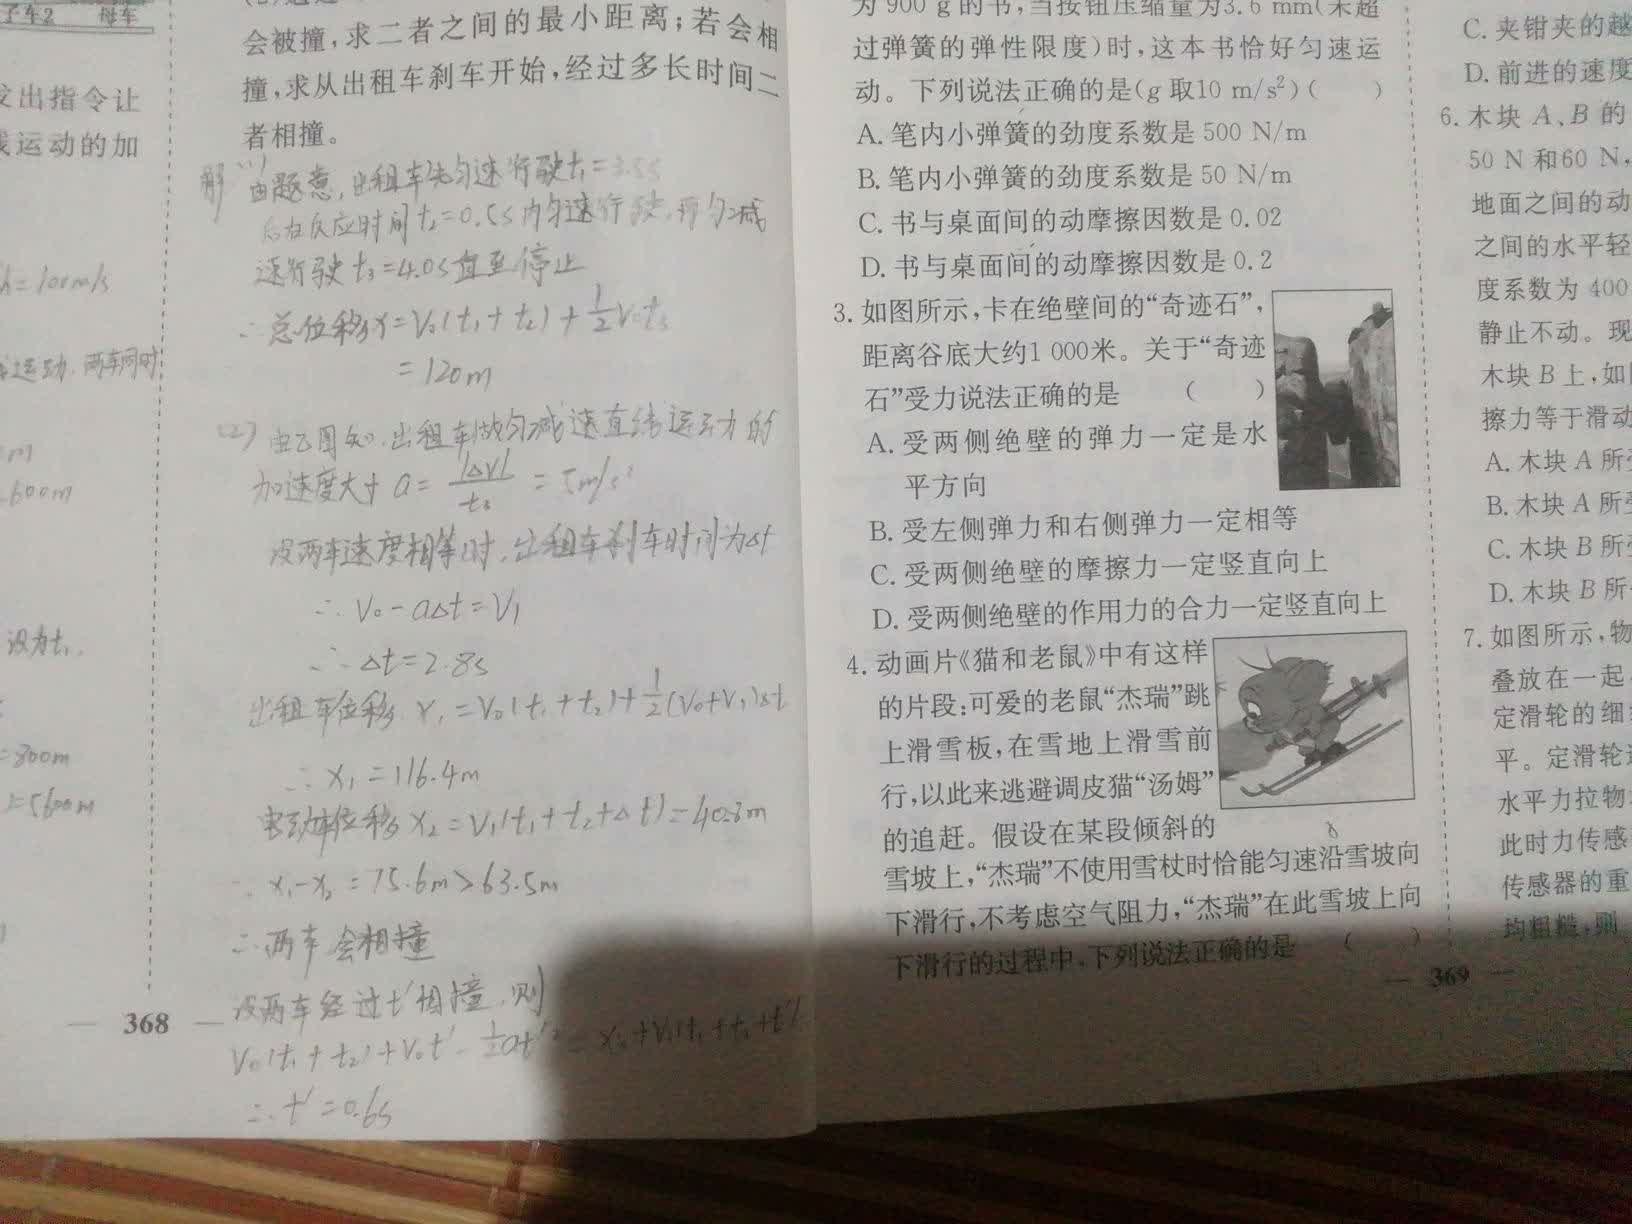 子车2 母车
发出指令让
线运动的加
=100m/s
600m
设为t₁.
=800m
=5600m
368
会被撞,求二者之间的最小距离;若会相
撞,求从出租车刹车开始,经过多长时间二
者相撞。
解(1)由题意,出租车先匀速行驶t₁=3.5s
后在反应时间t₂=0.5s内匀速行驶,再匀减
速行驶t₃=4.0s直至停止
∴总位移x=V₀(t₁+t₂)+½V₀t₃
=120m
(2)由乙图知,出租车做匀减速直线运动的
加速度大小a=|ΔV|/t₃=5m/s²
设两车速度相等时,出租车刹车时间为Δt
∴V₀-aΔt=V₁
∴Δt=2.8s
出租车位移x₁=V₀(t₁+t₂)+½(V₀+V₁)Δt
∴x₁=116.4m
电动车位移x₂=V₁(t₁+t₂+Δt)=40.8m
∴x₁-x₂=75.6m>63.5m
∴两车会相撞
设两车经过t'相撞,则
V₀(t₁+t₂)+V₀t'-½at'²=x₀+V₁(t₁+t₂+t')
∴t'=0.6s
为900 g的书,当按钮压缩量为3.6 mm(未超
过弹簧的弹性限度)时,这本书恰好匀速运
动。下列说法正确的是(g取10 m/s²)( )
A.笔内小弹簧的劲度系数是500 N/m
B.笔内小弹簧的劲度系数是50 N/m
C.书与桌面间的动摩擦因数是0.02
D.书与桌面间的动摩擦因数是0.2
3.如图所示,卡在绝壁间的“奇迹石”,
距离谷底大约1 000米。关于“奇迹
石”受力说法正确的是 ( )
A.受两侧绝壁的弹力一定是水
平方向
B.受左侧弹力和右侧弹力一定相等
C.受两侧绝壁的摩擦力一定竖直向上
D.受两侧绝壁的作用力的合力一定竖直向上
4.动画片《猫和老鼠》中有这样
的片段:可爱的老鼠“杰瑞”跳
上滑雪板,在雪地上滑雪前
行,以此来逃避调皮猫“汤姆”
的追赶。假设在某段倾斜的
雪坡上,“杰瑞”不使用雪杖时恰能匀速沿雪坡向
下滑行,不考虑空气阻力,“杰瑞”在此雪坡上向
下滑行的过程中,下列说法正确的是 ( )
369
C.夹钳夹的越
D.前进的速度
6.木块A、B的
50 N和60 N,
地面之间的动
之间的水平轻
度系数为400
静止不动。现
木块B上,如
擦力等于滑动
A.木块A所
B.木块A所
C.木块B所
D.木块B所
7.如图所示,物
叠放在一起
定滑轮的细
平。定滑轮
水平力拉物
此时力传感
传感器的重
均粗糙,则